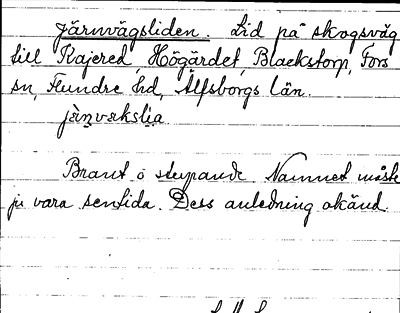 Järnvägsliden. Lid på skogsväg
till Kajered, Högärdet, Blackstorp, Fors
sn, Flundre hd, Älfsborgs län.
jä̀ṇvækslia
Brant o stupande. Namnet måste
ju vara sentida. Dess anledning okänd.